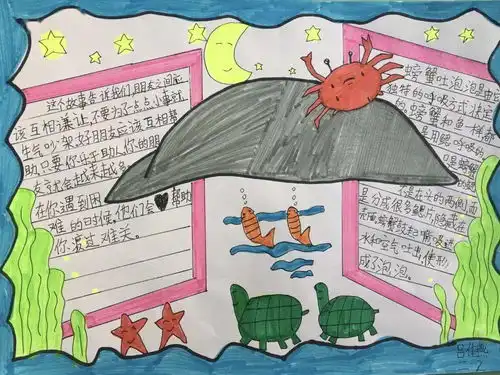 这个故事告诉我们,朋友之间应
该互相谦让,不要为了一点点小事就
生气吵架,好朋友应该互相帮
助,只要你乐于助人你的朋
友就会越来越多,
在你遇到困
难的时候,他们会帮助
你渡过难关。
螃蟹吐泡泡是由它
独特的呼吸方式决定
的螃蟹和鱼一样都
是用鳃呼吸的
是螃蟹
但是在头的两侧面
是分成很多鳃片隐藏在
螃蟹的起嘴吸进
水和空气吐出,便形
成了泡泡。